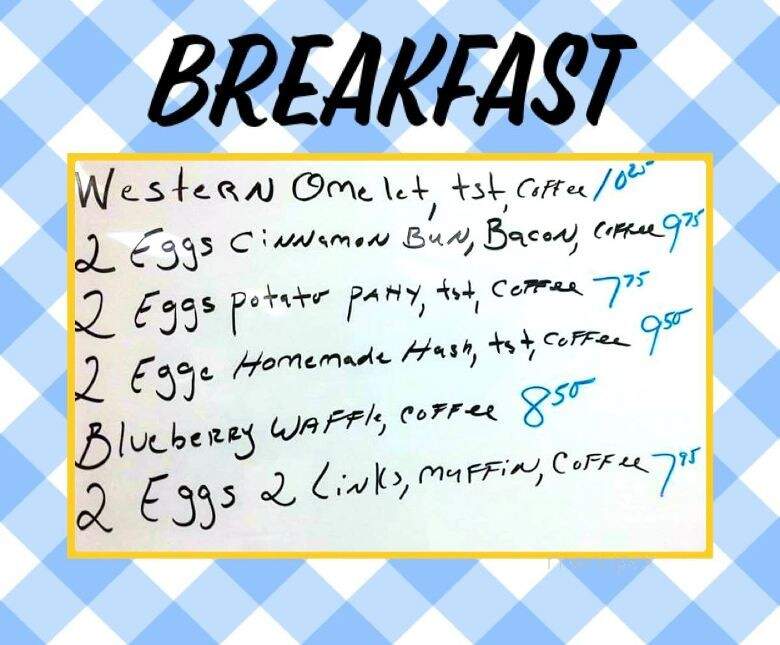 BREAKFAST
Western Omelet, tst, Coffee 10 25
2 Eggs Cinnamon Bun, Bacon, Coffee 9 75
2 Eggs potato patty, tst, Coffee 7 75
2 Eggs Homemade Hash, tst, Coffee 9 50
Blueberry Waffle, Coffee 8 50
2 Eggs 2 Links, Muffin, Coffee 7 95